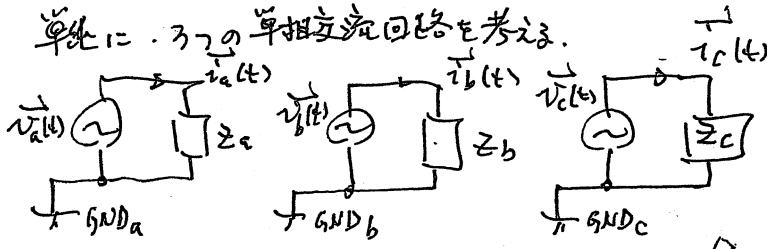 単純に、3つの単相交流回路を考える.
v_a(t) i_a(t) Z_a GND_a
v_b(t) i_b(t) Z_b GND_b
v_c(t) i_c(t) Z_c GND_c